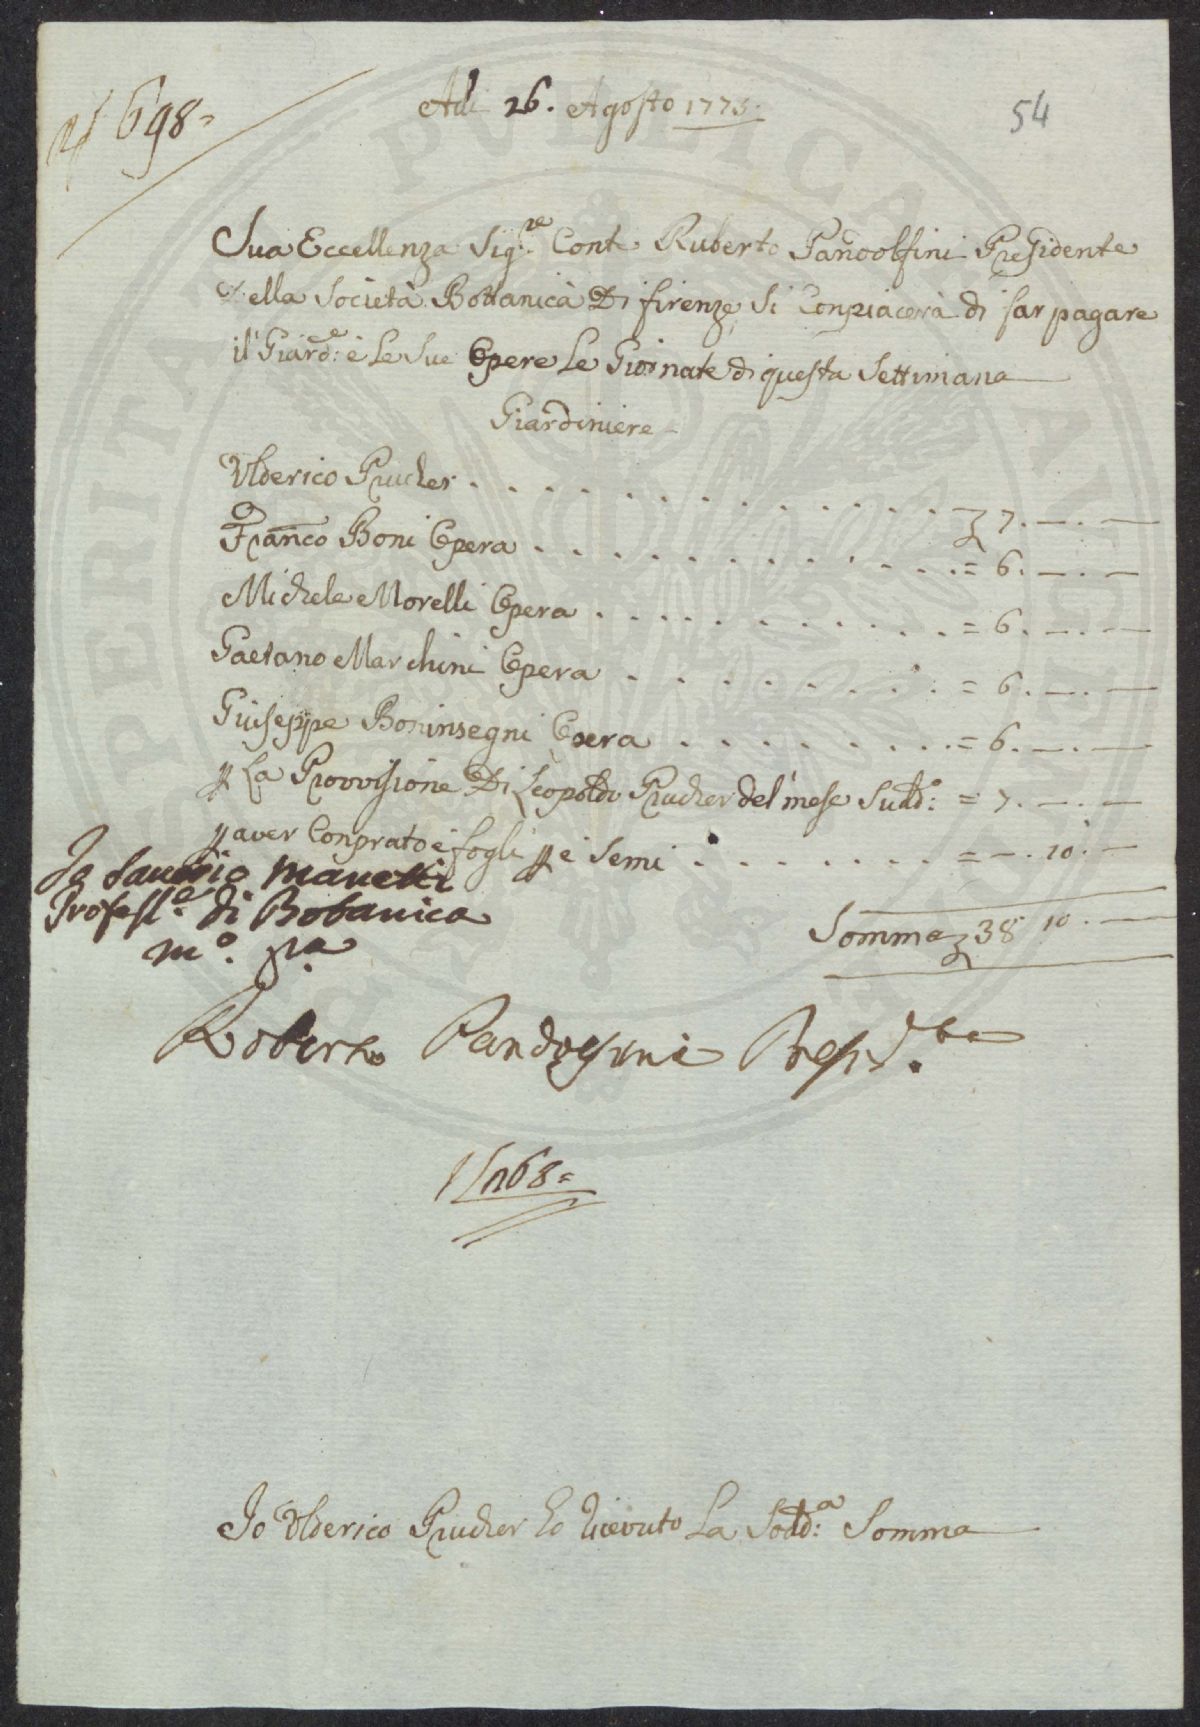 698=
Adì 26. Agosto 1773.
54
Sua Eccellenza Sig.re Conte Ruberto Pandolfini Presidente
della Società Bottanica Di firenze, Si Conpiacerà di far pagare
il Giard.e e Le Sue Opere Le Giornate di questa Settimana
Giardiniere
Ulderico Prucher . . . . . . . . . . . . 7.—.—
Franco Boni Opera . . . . . . . . . . . = 6.—.—
Michele Morelli Opera . . . . . . . . . . = 6.—.—
Gaetano Marchini Opera . . . . . . . . = 6.—.—
Giuseppe Boninsegni Opera . . . . . . . . = 6.—.—
La Provvisione Di Leopoldo Prucher del mese Sudd.o = 7.—.—
aver Conprato e fogli e Semi . . . . . . . . =—.10.—
Io Saverio Manetti
Profess.e di Botanica
m.o p.a
Somma 38 10.—
Roberto Pandolfini Presid.te
PUBLICAE
Io Ulderico Prucher ho ricevuto La Sudd.a Somma